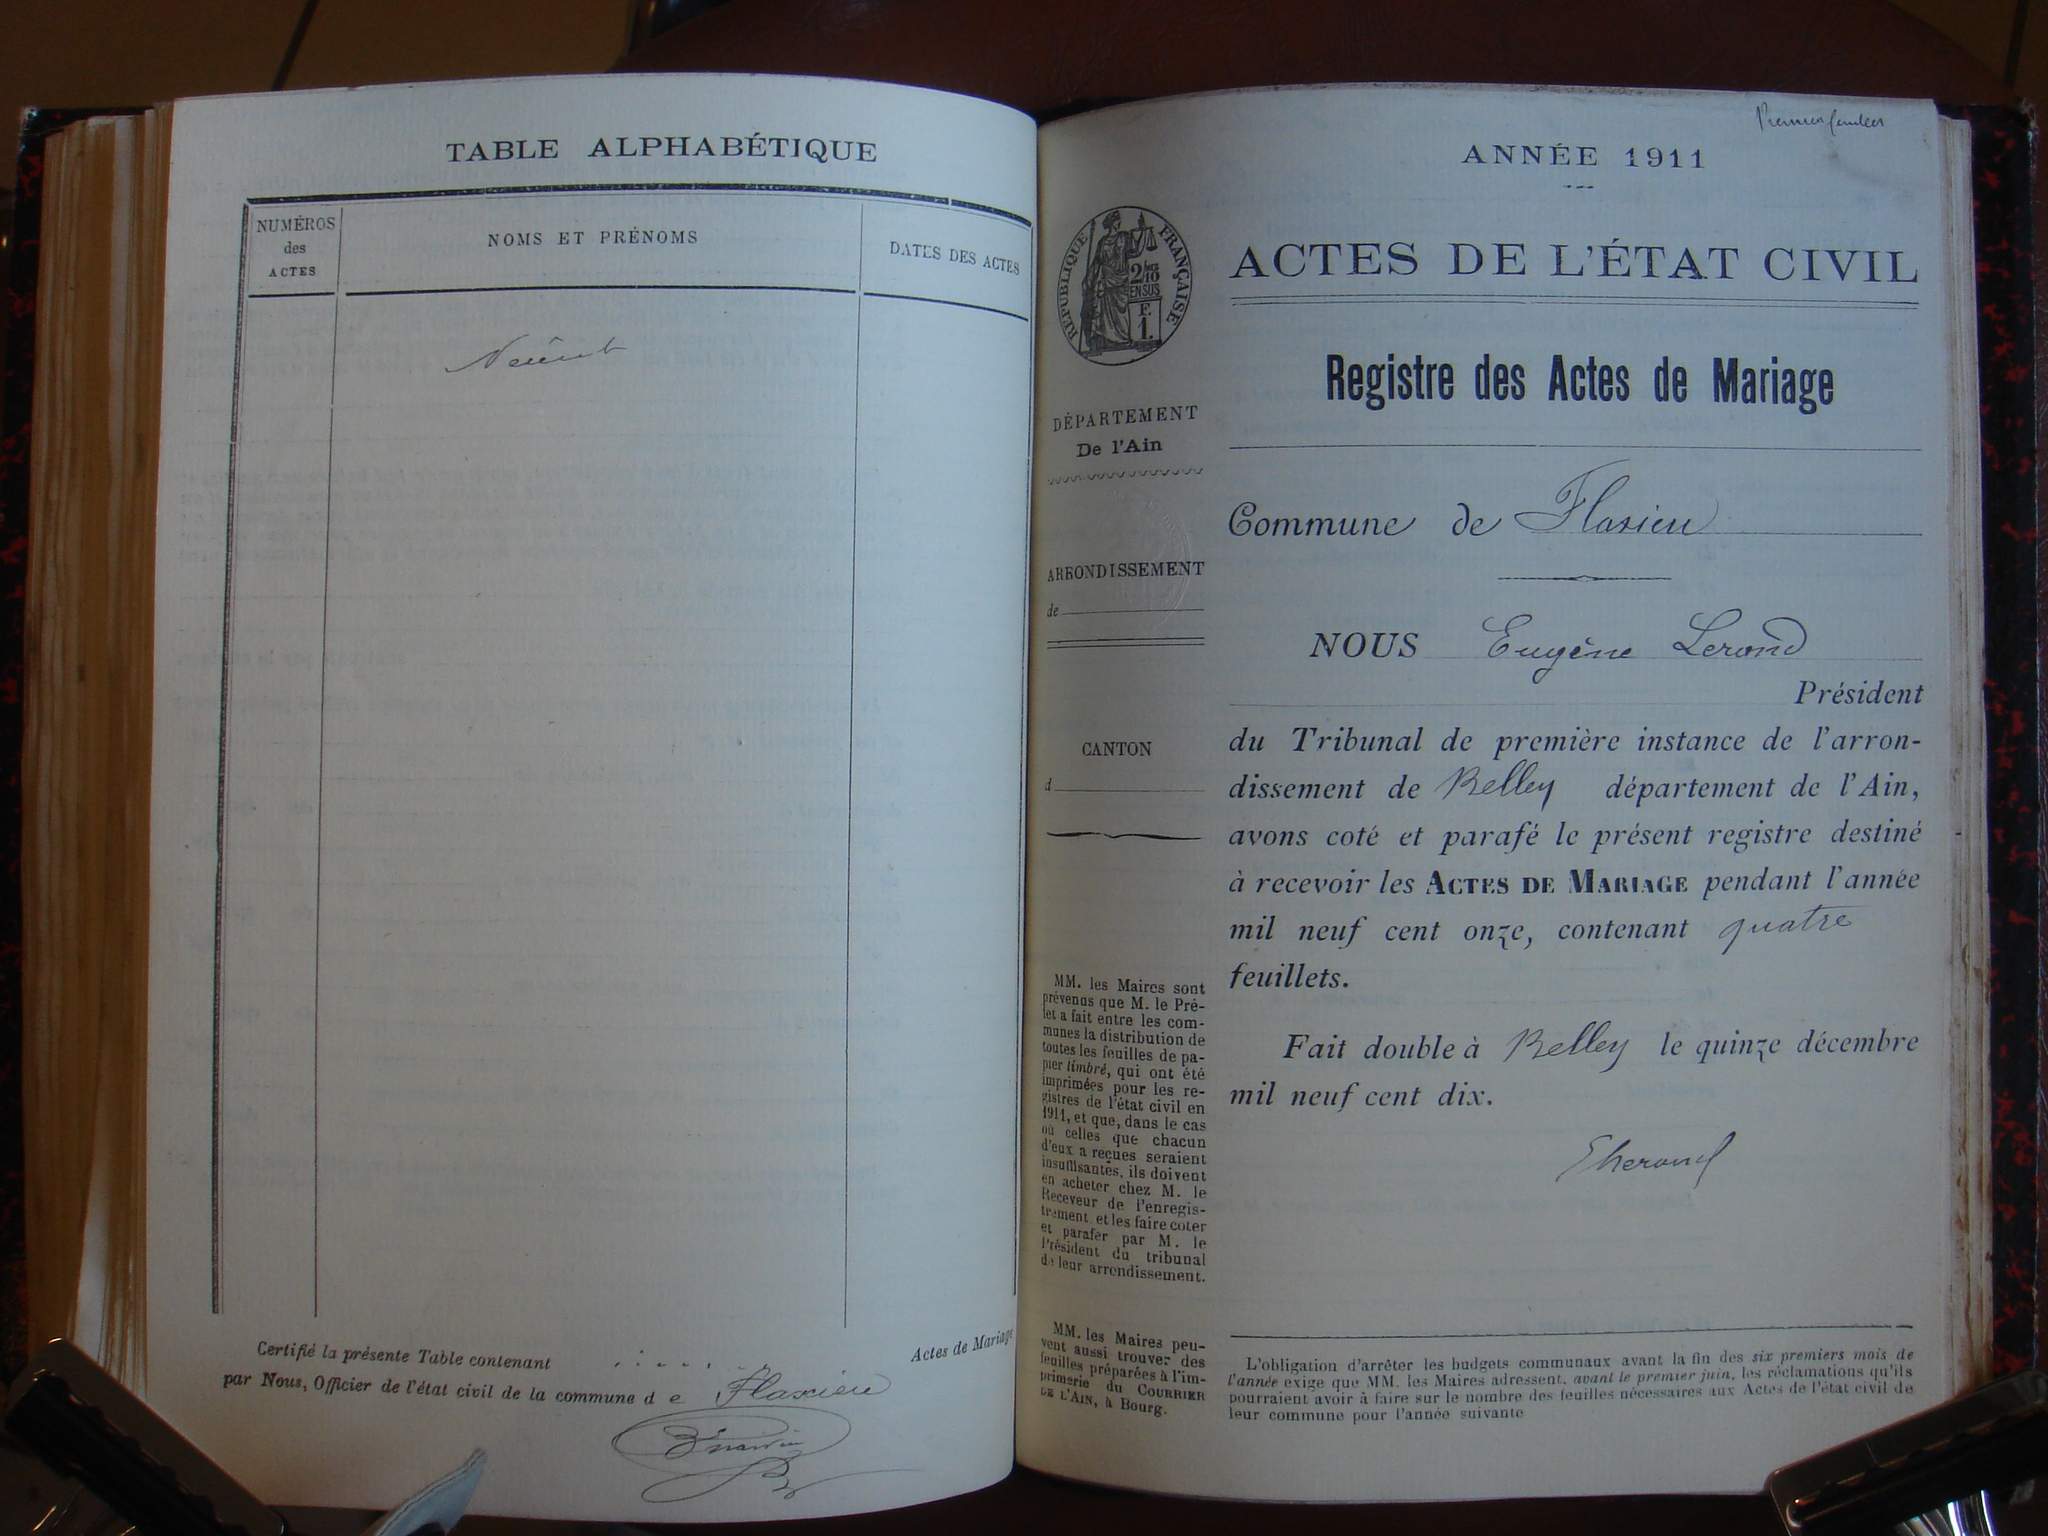 TABLE ALPHABÉTIQUE
NUMÉROS
des
ACTES
NOMS ET PRÉNOMS
DATES DES ACTES
Néant
Certifié la présente Table contenant
Actes de Mariage
par Nous, Officier de l'état civil de la commune d e Flaxieu
Premier feuillet
ANNÉE 1911
RÉPUBLIQUE FRANÇAISE
2/10
EN SUS
F.
1.
ACTES DE L'ÉTAT CIVIL
Registre des Actes de Mariage
DÉPARTEMENT
De l'Ain
ARRONDISSEMENT
de
CANTON
d
MM. les Maires sont
prévenus que M. le Pré-
fet a fait entre les com-
munes la distribution de
toutes les feuilles de pa-
pier timbré, qui ont été
imprimées pour les re-
gistres de l'état civil en
1911, et que, dans le cas
où celles que chacun
d'eux a reçues seraient
insuffisantes, ils doivent
en acheter chez M. le
Receveur de l'enregis-
trement et les faire coter
et parafer par M. le
Président du tribunal
de leur arrondissement.
MM. les Maires peu-
vent aussi trouver des
feuilles préparées à l'im-
primerie du COURRIER
DE L'AIN, à Bourg.
Commune de Flaxieu
NOUS Eugène Lerond
Président
du Tribunal de première instance de l'arron-
dissement de Belley département de l'Ain,
avons coté et parafé le présent registre destiné
à recevoir les ACTES DE MARIAGE pendant l'année
mil neuf cent onze, contenant quatre
feuillets.
Fait double à Belley le quinze décembre
mil neuf cent dix.
L'obligation d'arrêter les budgets communaux avant la fin des six premiers mois de
l'année exige que MM. les Maires adressent, avant le premier juin, les réclamations qu'ils
pourraient avoir à faire sur le nombre des feuilles nécessaires aux Actes de l'état civil de
leur commune pour l'année suivante